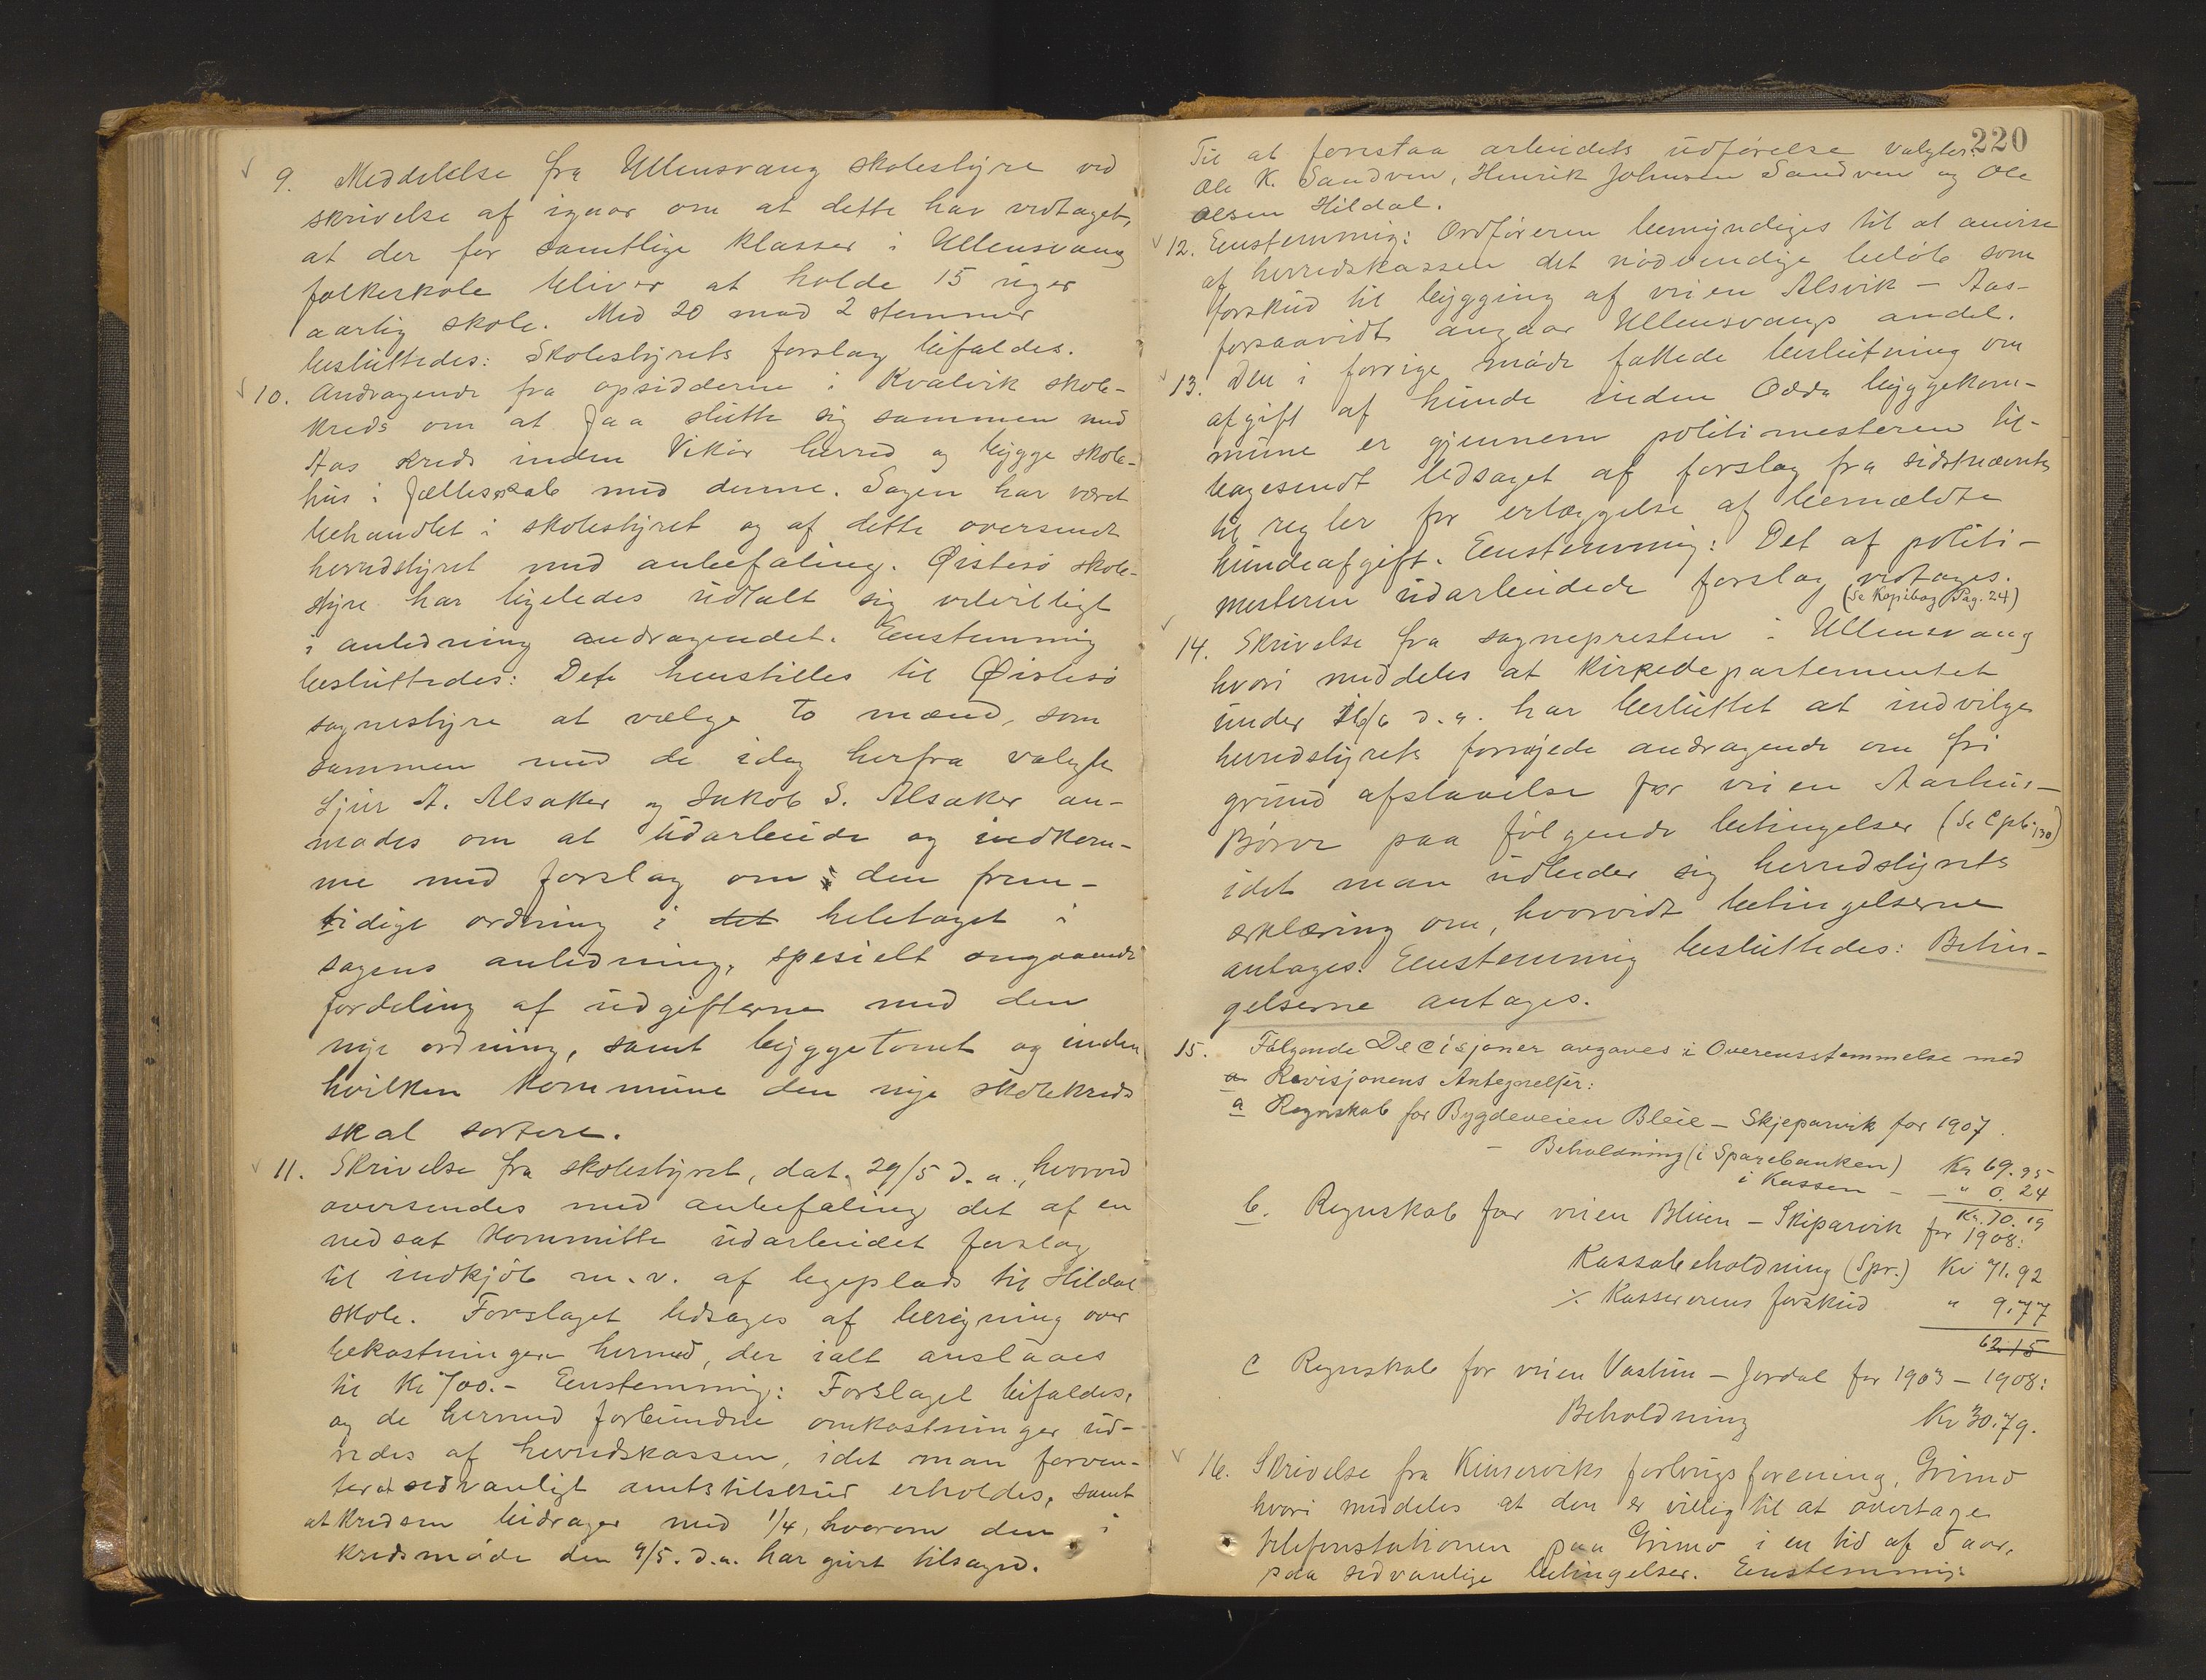 9. Meddelelse fra Ullensvang skolestyre ved
skrivelse af igaar om at dette har vedtaget,
at der for samtlige klasser i Ullensvang
folkeskole bliver at holde 15 uger
aarlig skole. Med 20 mod 2 stemmer
besluttedes: Skolestyrets forslag bifaldes.
10. Andragende fra opsidderne i Kvalvik skole-
kreds om at faa slutte sig sammen med
Aas kreds inden Vikør herred og bygge skole-
hus i fællesskab med denne. Sagen har været
behandlet i skolestyret og af dette oversendt
herredstyret med anbefaling. Østesø skole-
styre har ligeledes udtalt sig velvilligt
i anledning andragendet. Eenstemmig
besluttedes: Det henstilles til Øistesø
sognestyre at vælge to mænd, som
sammen med de idag herfra valgte
Sjur A. Alsaker og Jakob S. Alsaker an-
modes om at udarbeide og indkom-
me med forslag om den frem-
tidige ordning i det heletaget i
sagens anledning, spesielt angaaende
fordeling af udgifterne med den
nye ordning, samt byggetomt og inden
hvilken kommune den nye skolekreds
skal sortere.
11. Skrivelse fra skolestyret, dat. 29/5 d. a., hvorved
oversendes med anbefaling det af en
nedsat kommitte udarbeidet forslag
til indkjøb m. v. af legeplads til Hildal
skole. Forslaget ledsages af beregning over
bekostningen hermed, der ialt anslaaes
til Kr 700.- Eenstemmig: Forslaget bifaldes,
og de hermed forbundne omkostninger ud-
redes af herredskassen, idet man forven-
ter at sedvanligt amtstilskud erholdes, samt
at kredsen bidrager med 1/4, hvorom den i
kredsmøde den 9/5. d.a. har givet tilsagn.
220
Til at forestaa arbeidets udførelse valgtes:
Ole K. Sandven, Henrik Johnsen Sandven og Ole
Olsen Hildal.
12. Eenstemmig: Ordføreren bemyndiges til at anvise
af herredskassen det nødvendige beløb som
forskud til bygging af veien Alsvik - Aas-
forsaavidt angaar Ullensvangs andel.
13. Den i forrige møde fattede beslutning om
afgift af hunde inden Odda byggekom-
mune er gjennem politimesteren til-
bagesendt ledsaget af forslag fra sidstnævnte
til regler for erlæggelse af bemeldte
hundeafgift. Eenstemmig: Det af politi-
mesteren udarbeidede forslag vedtages.
(Se Kopibog Pag. 24)
14. Skrivelse fra sognepresten i Ullensvang
hvori meddeles at Kirkedepartementet
under 16/6 d. a. har besluttet at indvilge
herredstyrets fornyede andragende om fri
grund afstaaelse for veien Aarhus-
Børve paa følgende betingelser (Se Cpb. 130)
idet man udbeder sig herredstyrets
erklæring om, hvorvidt betingelserne
antages. Eenstemmig besluttedes: Betin-
gelserne antages.
15. Følgende Decisjoner avgaves i Overensstemmelse med
a Revisjonens Antegnelser:
a Regnskab for Bygdeveien Bleie - Skjeparvik for 1907.
- Beholdning (i Sparebanken) Kr 69.95
i Kassen - - " 0.24
Kr. 70.19
b. Regnskab for veien Bleien - Skiparvik for 1908:
Kassabeholdning (Spr.) Kr 71.92
÷ Kassererens forskud " 9.77
62.15
c Regnskab for veien Vastun - Jordal for 1903 - 1908:
Beholdning Kr 30.79.
16. Skrivelse fra Kinserviks forbrugsforening, Grimo
hvori meddeles at den er villig til at overtage
telefonstationen paa Grimo i en tid af 5 aar,
paa sedvanlige betingelser. Eenstemmig: